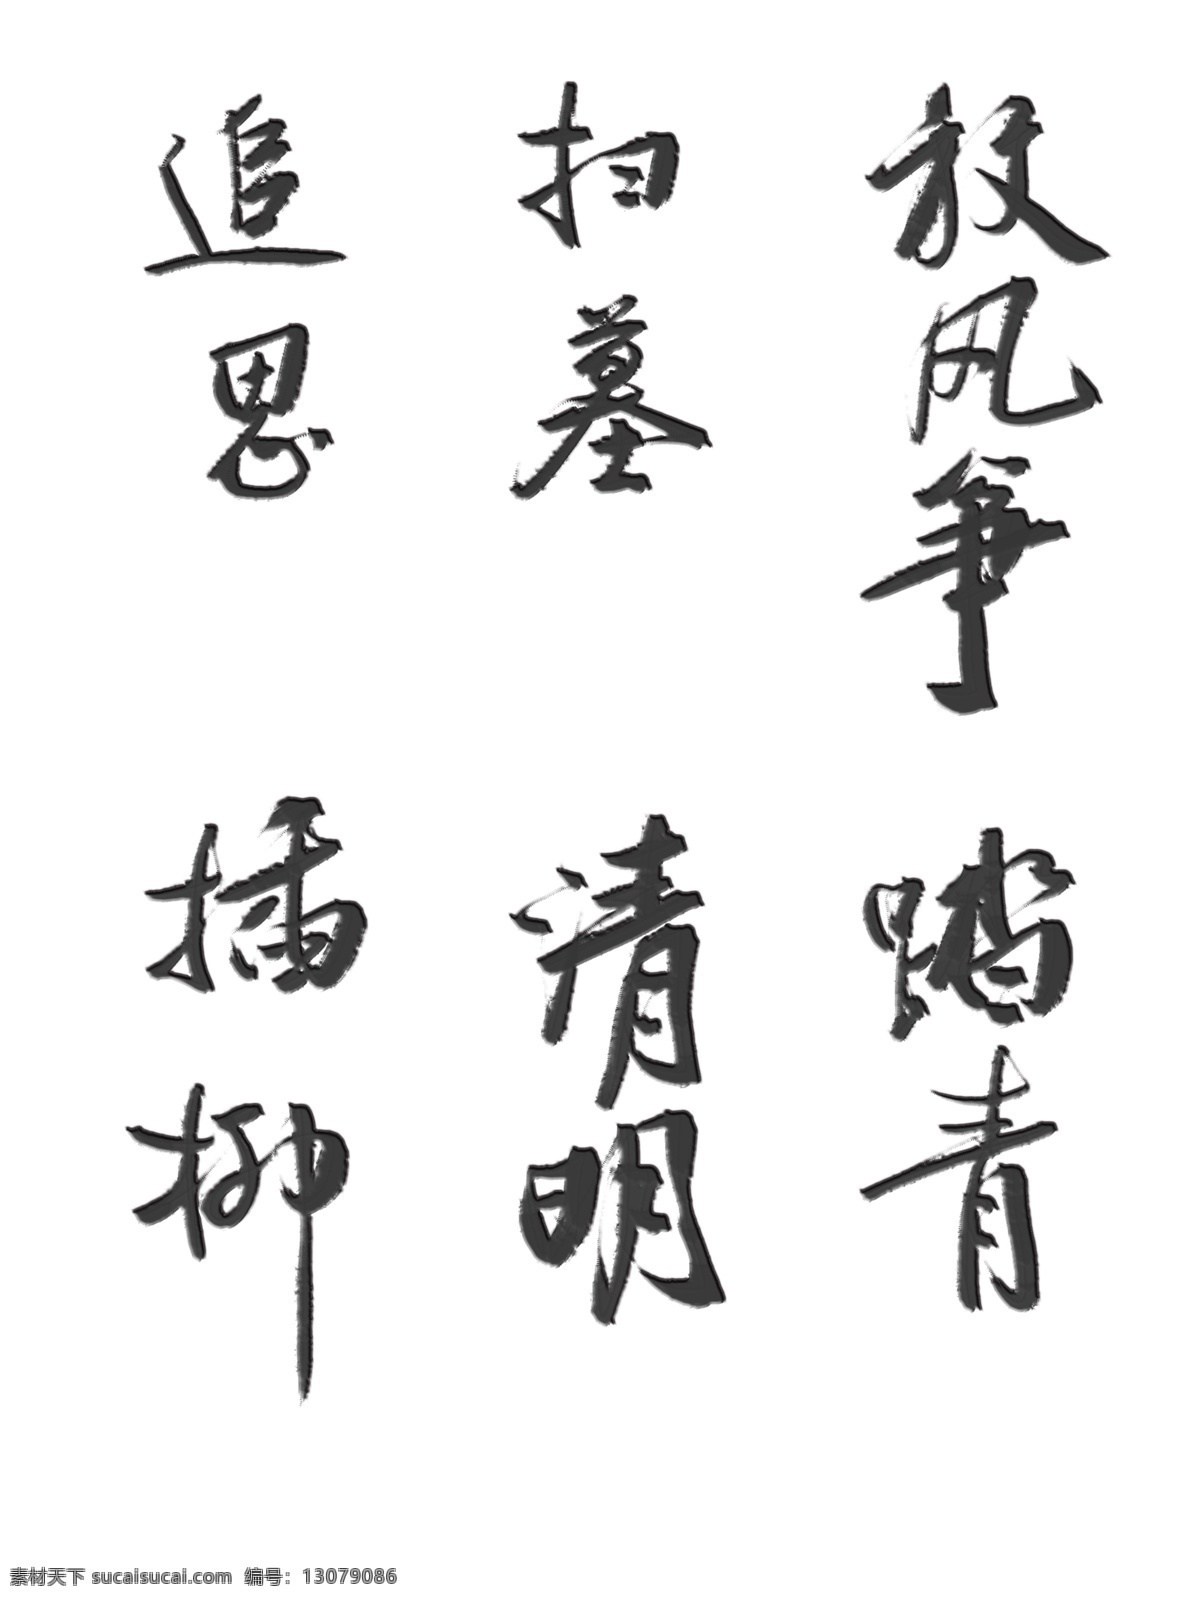 追思
扫墓
放风筝
插柳
清明
踏青
素材天下 sucaisucai.com 编号：13079086